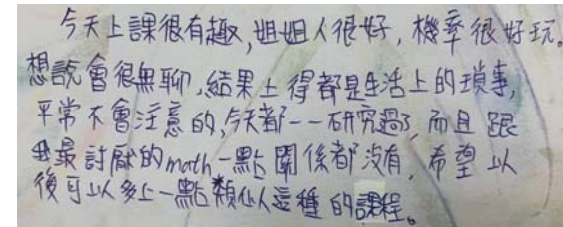 今天上課很有趣,姐姐人很好,機率很好玩。
想說會很無聊,結果上得都是生活上的瑣事,
平常不會注意的,今天都一一研究過了,而且跟
我最討厭的math一點關係都沒有,希望以
後可以多上一點類似這種的課程。